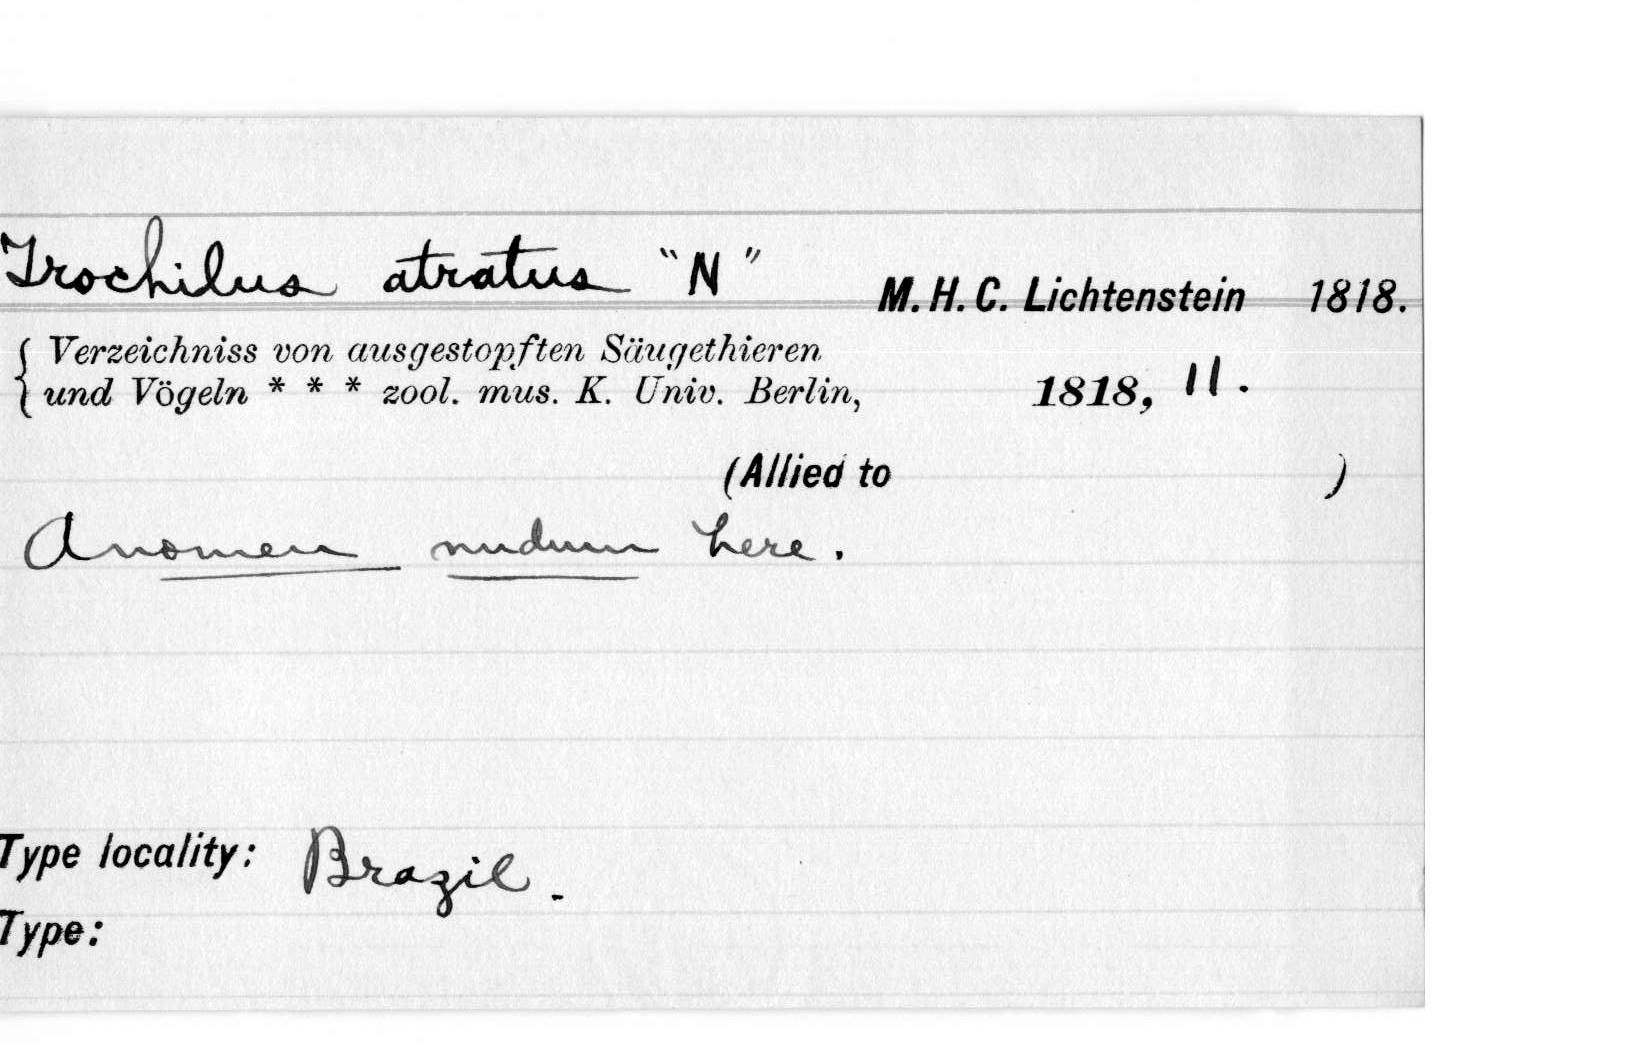 Trochilus atratus "N" M. H. C. Lichtenstein 1818.
{ Verzeichniss von ausgestopften Säugethieren
{ und Vögeln * * * zool. mus. K. Univ. Berlin, 1818, 11.
(Allied to )
A nomen nudum here.
Type locality: Brazil.
Type: